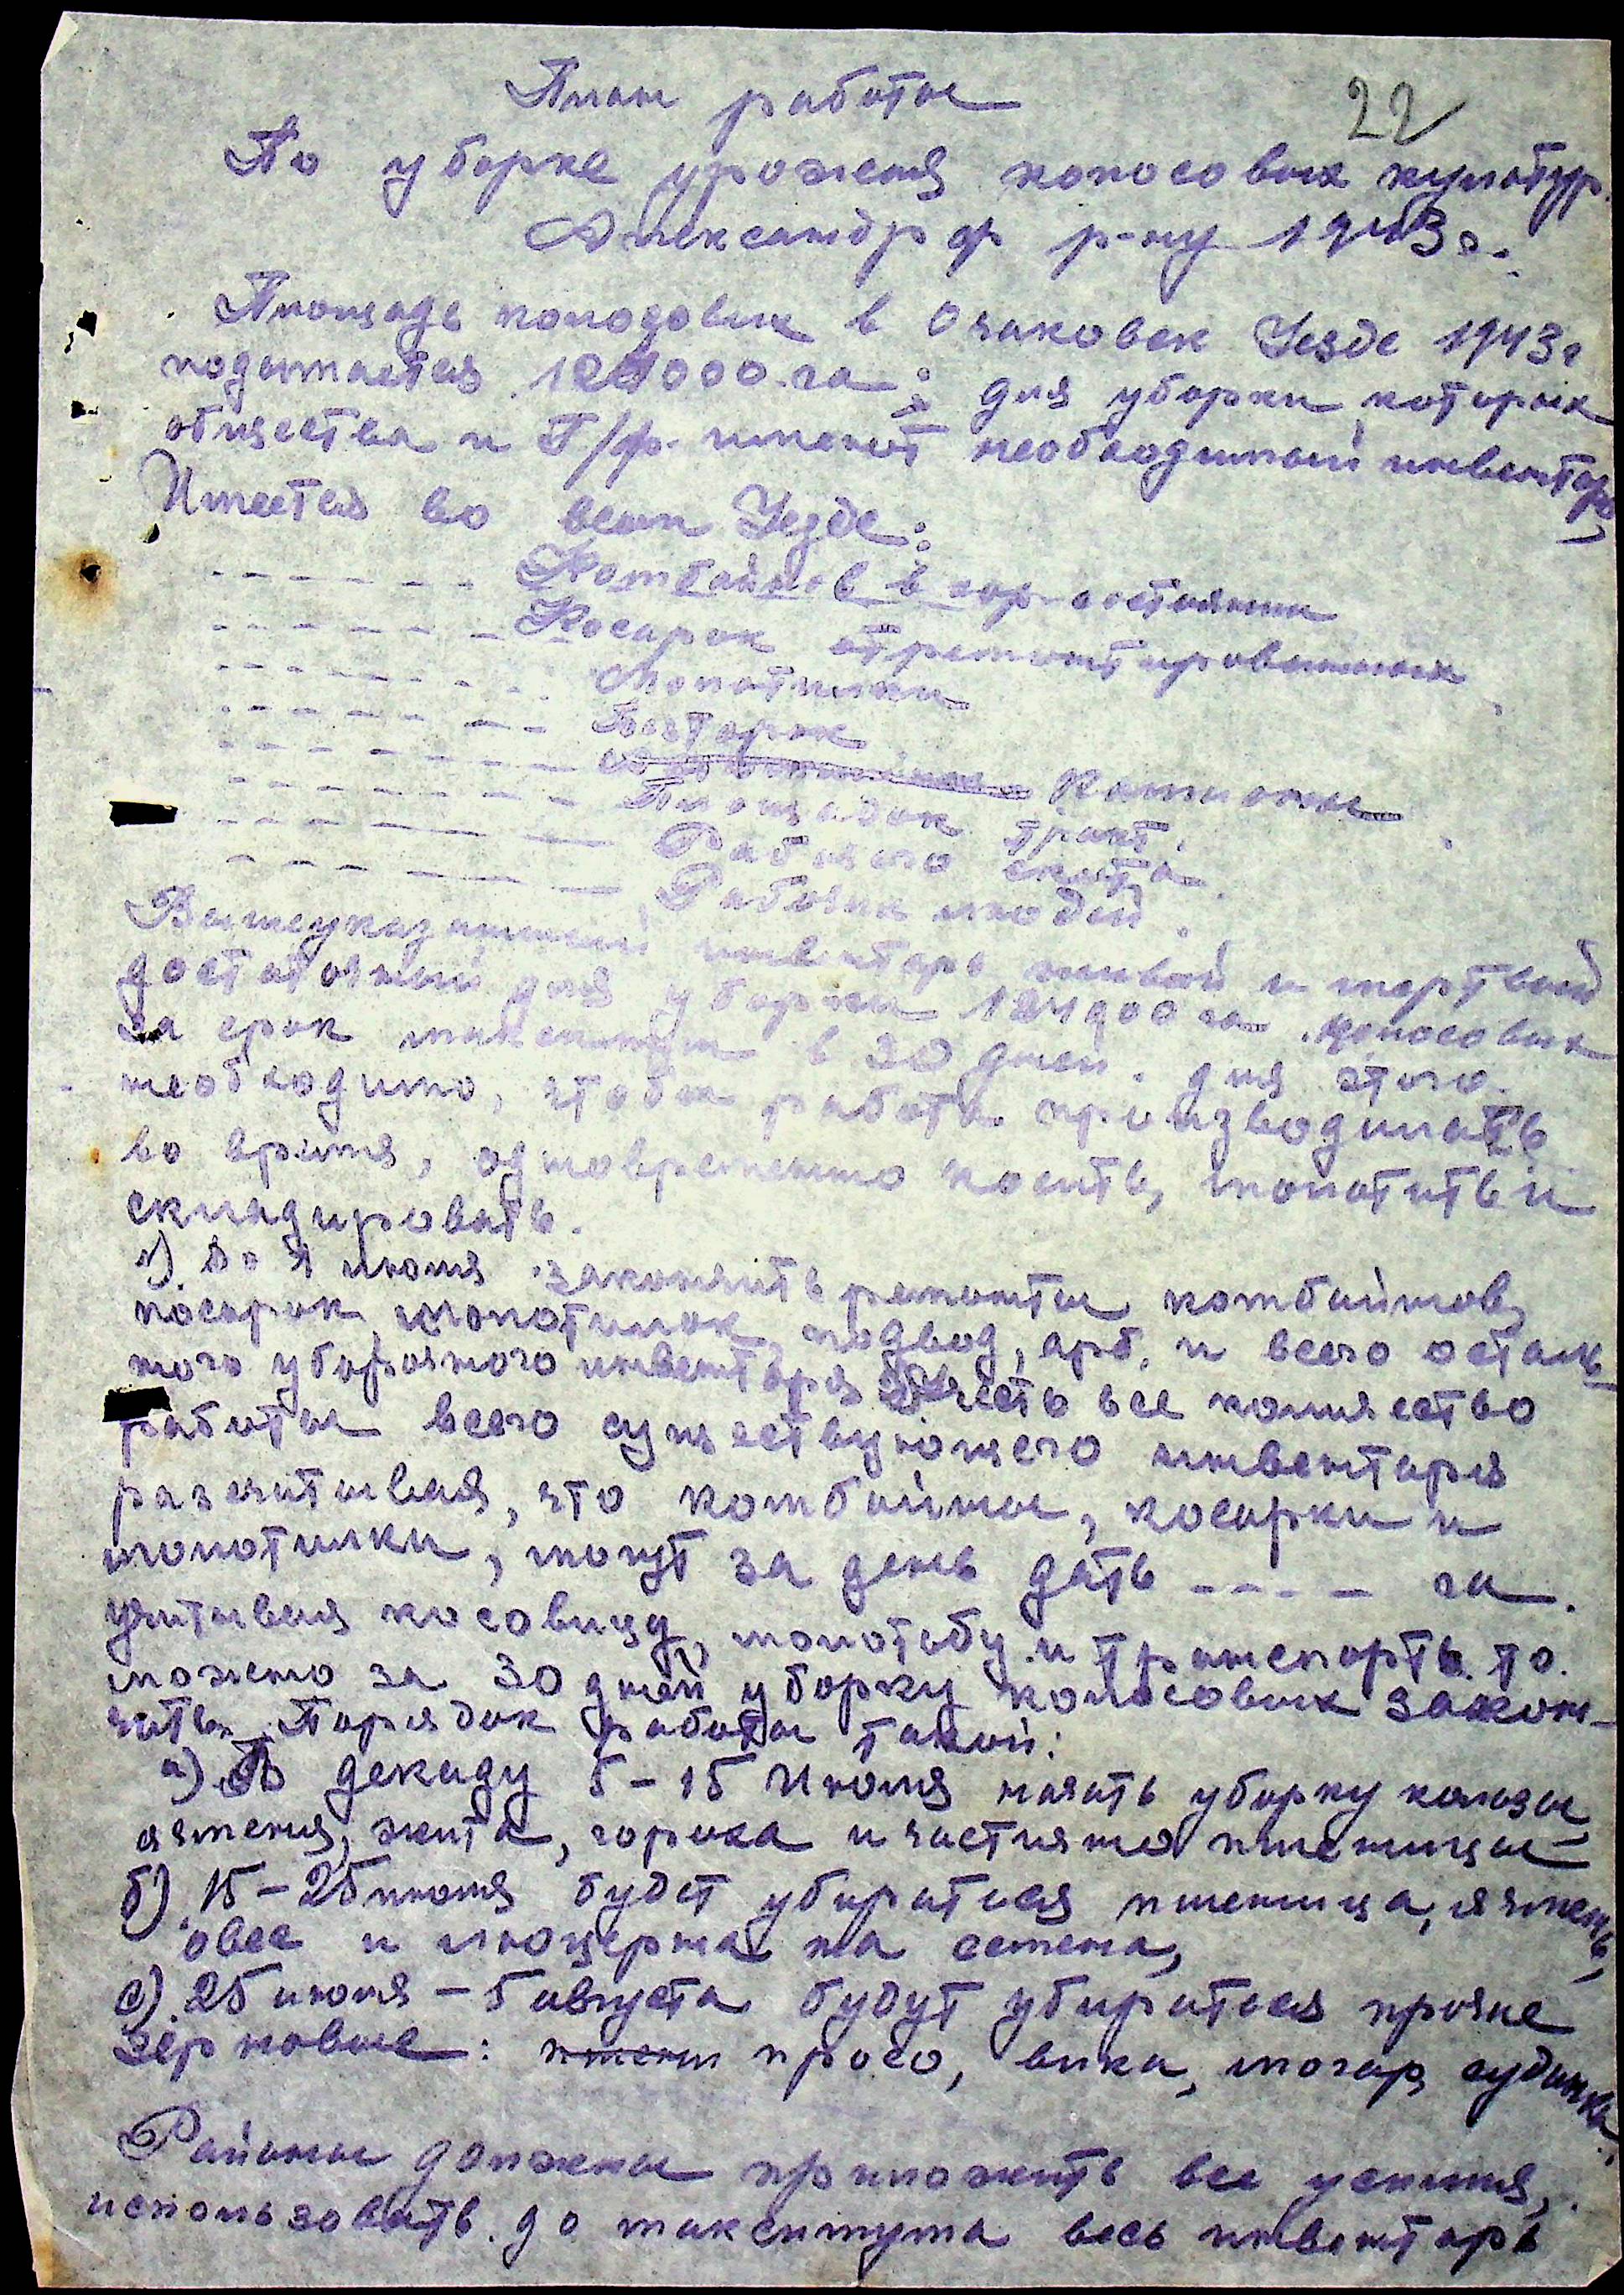 План работы
22
По уборке урожая колосовых культур.
Александрф р-ну 1943 г.
Площадь колосовых в Очаковск Уезде 1943 г
подымается 124000 га; для уборки которых
общества и Г/ф. имеют необходимый инвентарь,
Имеется во всем Уезде:
- - - - - - Комбайнов в хор-состоянии
- - - - - - Косарок отремонтированных
- - - - - - - Молотилки
- - - - - - - Бестарок
- - - - - - - Камионы
- - - - - - - Площадок тракт.
- - - - - - - Рабочего скота.
- - - - - - - Рабочих людей.
Вышеуказанный инвентарь живой и мертвый
достаточный для уборки 124000 га колосовых
за срок максимум в 30 дней. для этого
необходимо, чтобы работа производилась
во время, одновременно косить, молотить и
складировать.
1) До 1 июля закончить ремонты комбайнов,
косарок, молотилок, подвод, арб, и всего осталь-
ного уборочного инвентаря учесть все количество
работы всего существующего инвентаря
расчитывая, что комбайны, косарки и
молотилки, могут за день дать - - - - га.
учитывая косовицу, молотьбу и транспорт. то
можно за 30 дней уборку колосовых закон-
чить. Порядок работы такой:
а) В декаду 5-15 Июля начать уборку кользы,
ячменя, жита, гороха и частична пшеницы
б) 15-25 июля будет убираться пшеница, ячмень,
овес и люцерна на семена,
с) 25 июля - 5 августа будут убираться прочие
зерновые: пшени просо, вика, могар, суданка.
Районы должны приложить все усилия,
использовать до максимума весь инвентарь